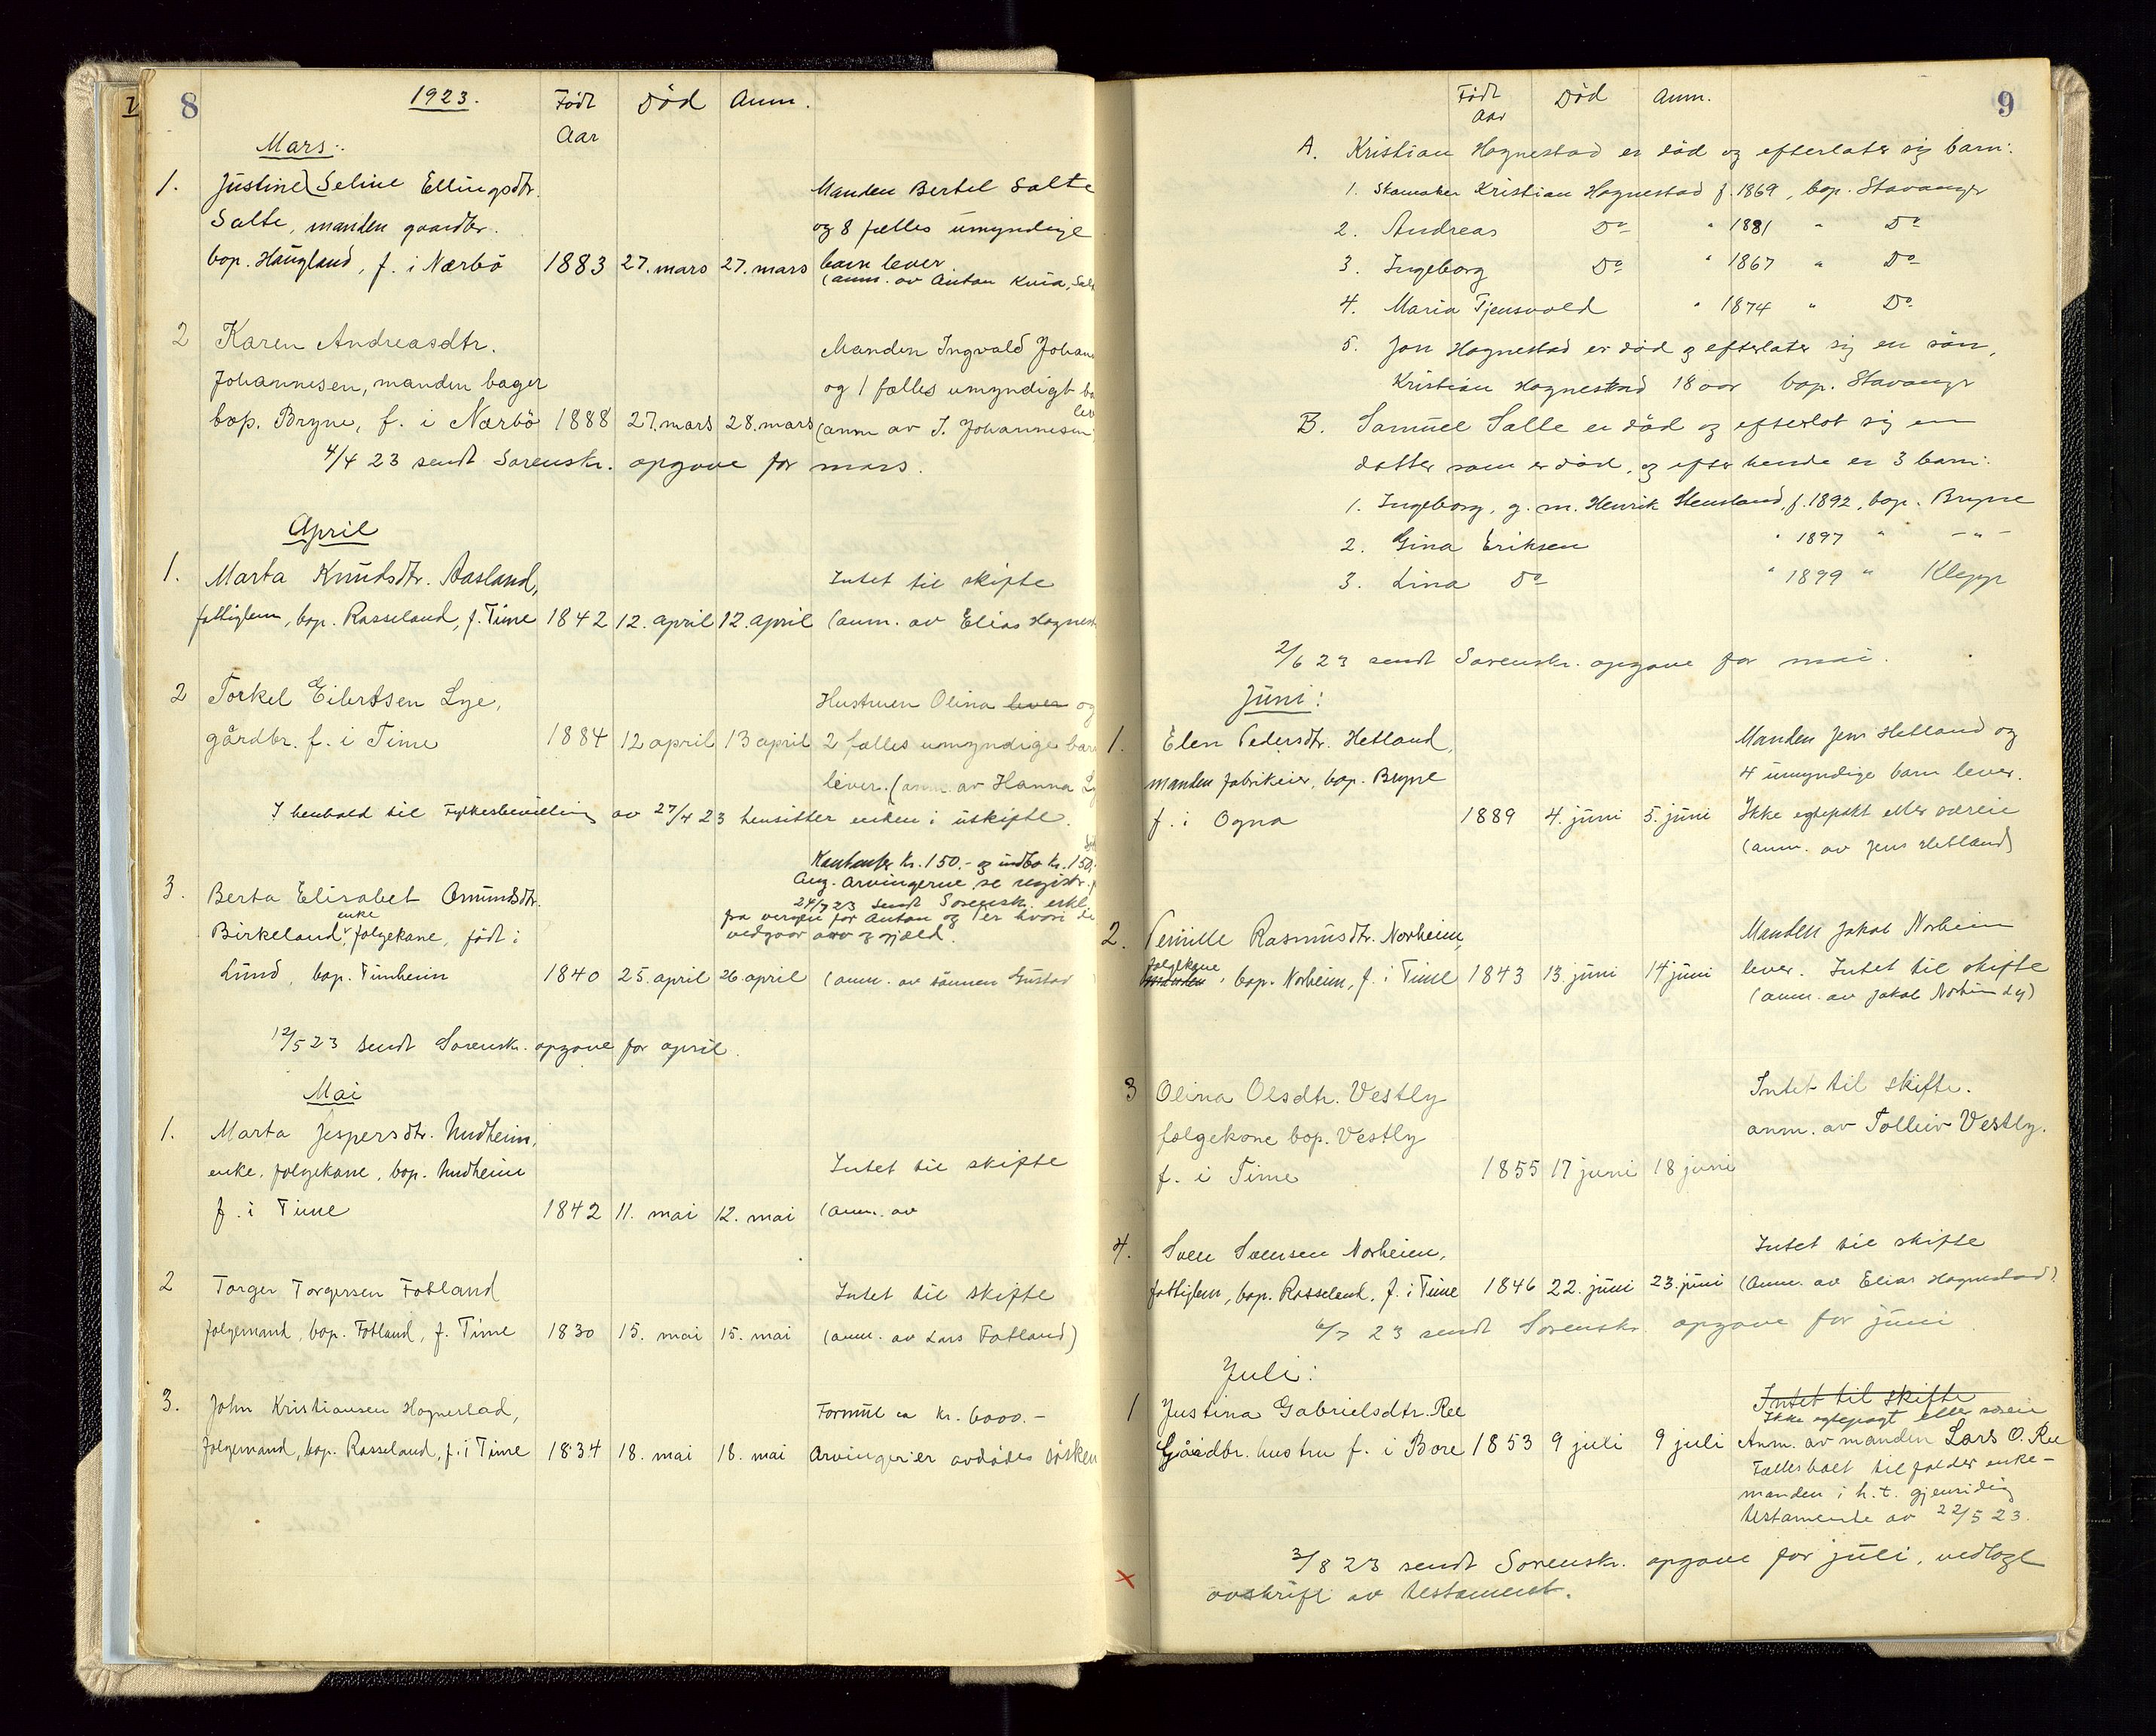 8
1923.
Født Aar
Død
Anm.
Mars:
1. Justine Seline Ellingsdtr.
Salte, manden gaardbr.
bop. Haugland, f. i Nærbö 1883 27. mars 27. mars
Manden Bertel Salte
og 8 fælles umyndige
barn lever
(anm. av Anton Kvia,
2 Karen Andreasdtr.
Johannesen, manden bager
bop. Bryne, f. i Nærbö 1888 27. mars 28. mars
Manden Ingvald
og 1 fælles umyndigt
(anm av I. Johannesen
4/4 23 sendt Sorenskr. opgave for mars.
April
1. Marta Knudsdtr. Aasland,
fattiglem, bop. Rosseland, f. Time 1842 12. april 12. april
Intet til skifte
(anm. av Elias
2 Torkel Eilertsen Lye,
gårdbr. f. i Time 1884 12 april 13 april
Hustruen Olina lever og
2 fælles umyndige
lever. (anm. av Hanna
I henhold til Fylkesbevilling av 27/4 23 hensitter enken i uskifte.
3. Berta Elisabet Omundsdtr.
Birkeland, enke, folgekone, født i
Lund, bop. Timheim 1840 25. april 26 april
Kontanter kr. 150.- og indbo kr. 150.-
Ang. Arvingerne se registr.
24/7 23 sendt Sorenskr.
fra vergen for Anton og
vedgaar arv og gjæld.
(anm. av sønnen Gustav
12/5 23 sendt Sorenskr. opgave for april.
Mai
1. Marta Jespersdtr. Undheim,
enke, folgekone, bop. Undheim
f. i Time 1842 11. mai 12. mai
Intet til skifte
(anm. av
2 Torger Torgersen Fotland
folgemand, bop. Fotland, f. Time 1830 15. mai 15. mai
Intet til skifte
(anm. av Lars Fotland)
3. John Kristiansen Hognestad,
folgemand, bop. Rosseland, f. i Time 1834 18. mai 18. mai
Formue ca kr. 6000.-
Arvinger er avdødes søsken
9
Født Aar
Død
Anm.
A. Kristian Hognestad er død og efterlater sig barn:
1. Skomaker Kristian Hognestad f. 1869, bop. Stavanger
2. Andreas Do " 1881 " Do
3. Ingeborg Do " 1867 " Do
4. Maria Tjensvold " 1874 " Do
5. Jon Hognestad er død og efterlater sig en søn,
Kristian Hognestad 18 aar bop. Stavanger
B. Samuel Salte er død og efterlot sig en
datter som er død, og efter hende er 3 barn:
1. Ingeborg, g. m. Henrik Stensland, f. 1892, bop. Bryne
2. Gina Eriksen " 1897 " -"-
3. Lina Do " 1899 " Klepp
2/6 23 sendt Sorenskr. opgave for mai.
Juni:
1. Elen Pedersdtr. Hetland,
manden fabrikeier, bop. Bryne
f. i Ogna 1889 4. juni 5. juni
Manden Jens Hetland og
4 umyndige barn lever.
Ikke egtepakt eller særeie
(anm. av Jens Hetland)
2. Pernille Rasmusdtr. Norheim,
folgekone, bop. Norheim, f. i Time 1843 13. juni 14 juni
Manden Jakob Norheim
lever. Intet til skifte
(anm. av Jakob Norheim
3 Olina Olsdtr. Vestly
folgekone bop. Vestly
f. i Time 1855 17 juni 18 juni
Intet til skifte.
anm. av Tolleiv Vestly.
4. Sven Svensen Norheim,
fattiglem, bop. Rosseland, f. i Time 1846 22. juni 23. juni
Intet til skifte
(Anm. av Elias Hognestad)
6/7 23 sendt Sorenskr. opgave for juni
Juli:
1 Justina Gabrielsdtr. Ree
Gårdbr. hustru f. i Bore 1853 9 juli 9 juli
Intet til skifte
Ikke egtepagt eller særeie
Anm. av manden Lars O. Ree
Fællesboet tilfalder enke-
manden i h. t. gjensidig
testamente av 22/5 23.
3/8 23 sendt Sorenskr. opgave for juli, vedlagt
avskrift av testament.